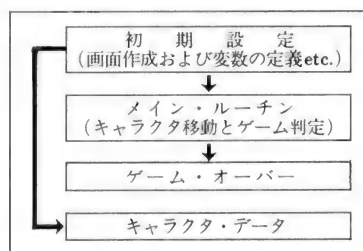 初期設定
(画面作成および変数の定義etc.)
メイン・ルーチン
(キャラクタ移動とゲーム判定)
ゲーム・オーバー
キャラクタ・データ